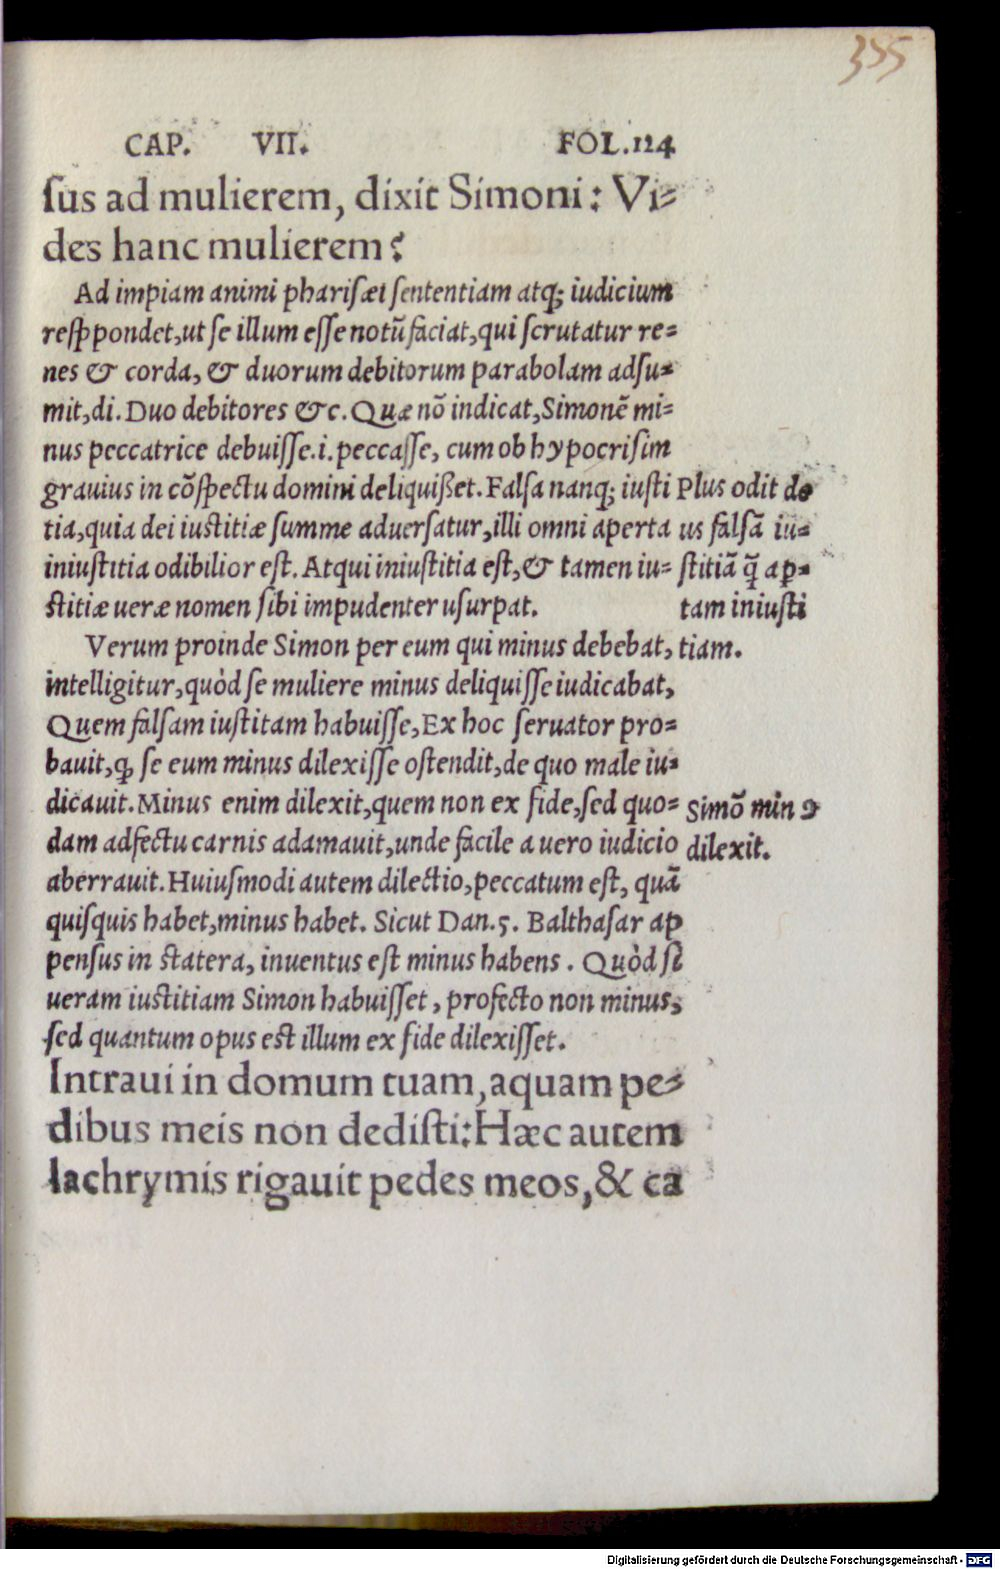 355
CAP. VII. FOL.124
ſus ad mulierem, dixit Simoni: Vi⸗
des hanc mulierem?
Ad impiam animi phariſæi ſententiam atq; iudicium
reſpondet,ut ſe illum eſſe notũ faciat,qui ſcrutatur re⸗
nes & corda, & duorum debitorum parabolam adſu⸗
mit,di. Duo debitores &c. Quæ nõ indicat,Simonẽ mi⸗
nus peccatrice debuiſſe.i.peccaſſe, cum ob hypocriſim
grauius in cõſpectu domini deliquißet. Falſa nanq; iuſti
tia,quia dei iuſtitiæ ſumme aduerſatur,illi omni aperta
iniuſtitia odibilior eſt. Atqui iniuſtitia eſt,& tamen iu⸗
ſtitiæ ueræ nomen ſibi impudenter uſurpat.
Plus odit de
us falſã iu⸗
ſtitiã q̃ ap⸗
tam iniuſti
tiam.
Verum proinde Simon per eum qui minus debebat,
intelligitur,quòd ſe muliere minus deliquiſſe iudicabat,
Quem falſam iuſtitam habuiſſe,Ex hoc ſeruator pro⸗
bauit,ꝙ ſe eum minus dilexiſſe oſtendit,de quo male iu⸗
dicauit.Minus enim dilexit,quem non ex fide,ſed quo⸗
dam adfectu carnis adamauit,unde facile a uero iudicio
aberrauit.Huiuſmodi autem dilectio,peccatum eſt, quã
quiſquis habet,minus habet. Sicut Dan.5. Balthaſar ap
penſus in ſtatera, inuentus eſt minus habens. Quòd ſi
ueram iuſtitiam Simon habuiſſet, profecto non minus,
ſed quantum opus eſt illum ex fide dilexiſſet.
Simõ minꝰ
dilexit.
Intraui in domum tuam,aquam pe⸗
dibus meis non dediſti:Hæc autem
lachrymis rigauit pedes meos,& ca
Digitalisierung gefördert durch die Deutsche Forschungsgemeinschaft - DFG